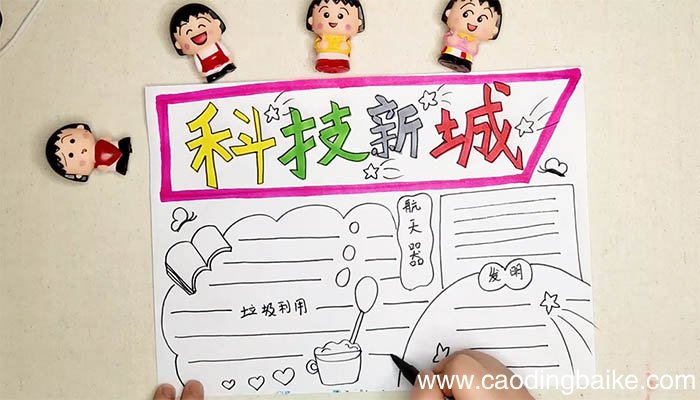 科技新城
航天器
发明
垃圾利用
www.caodingbaike.com